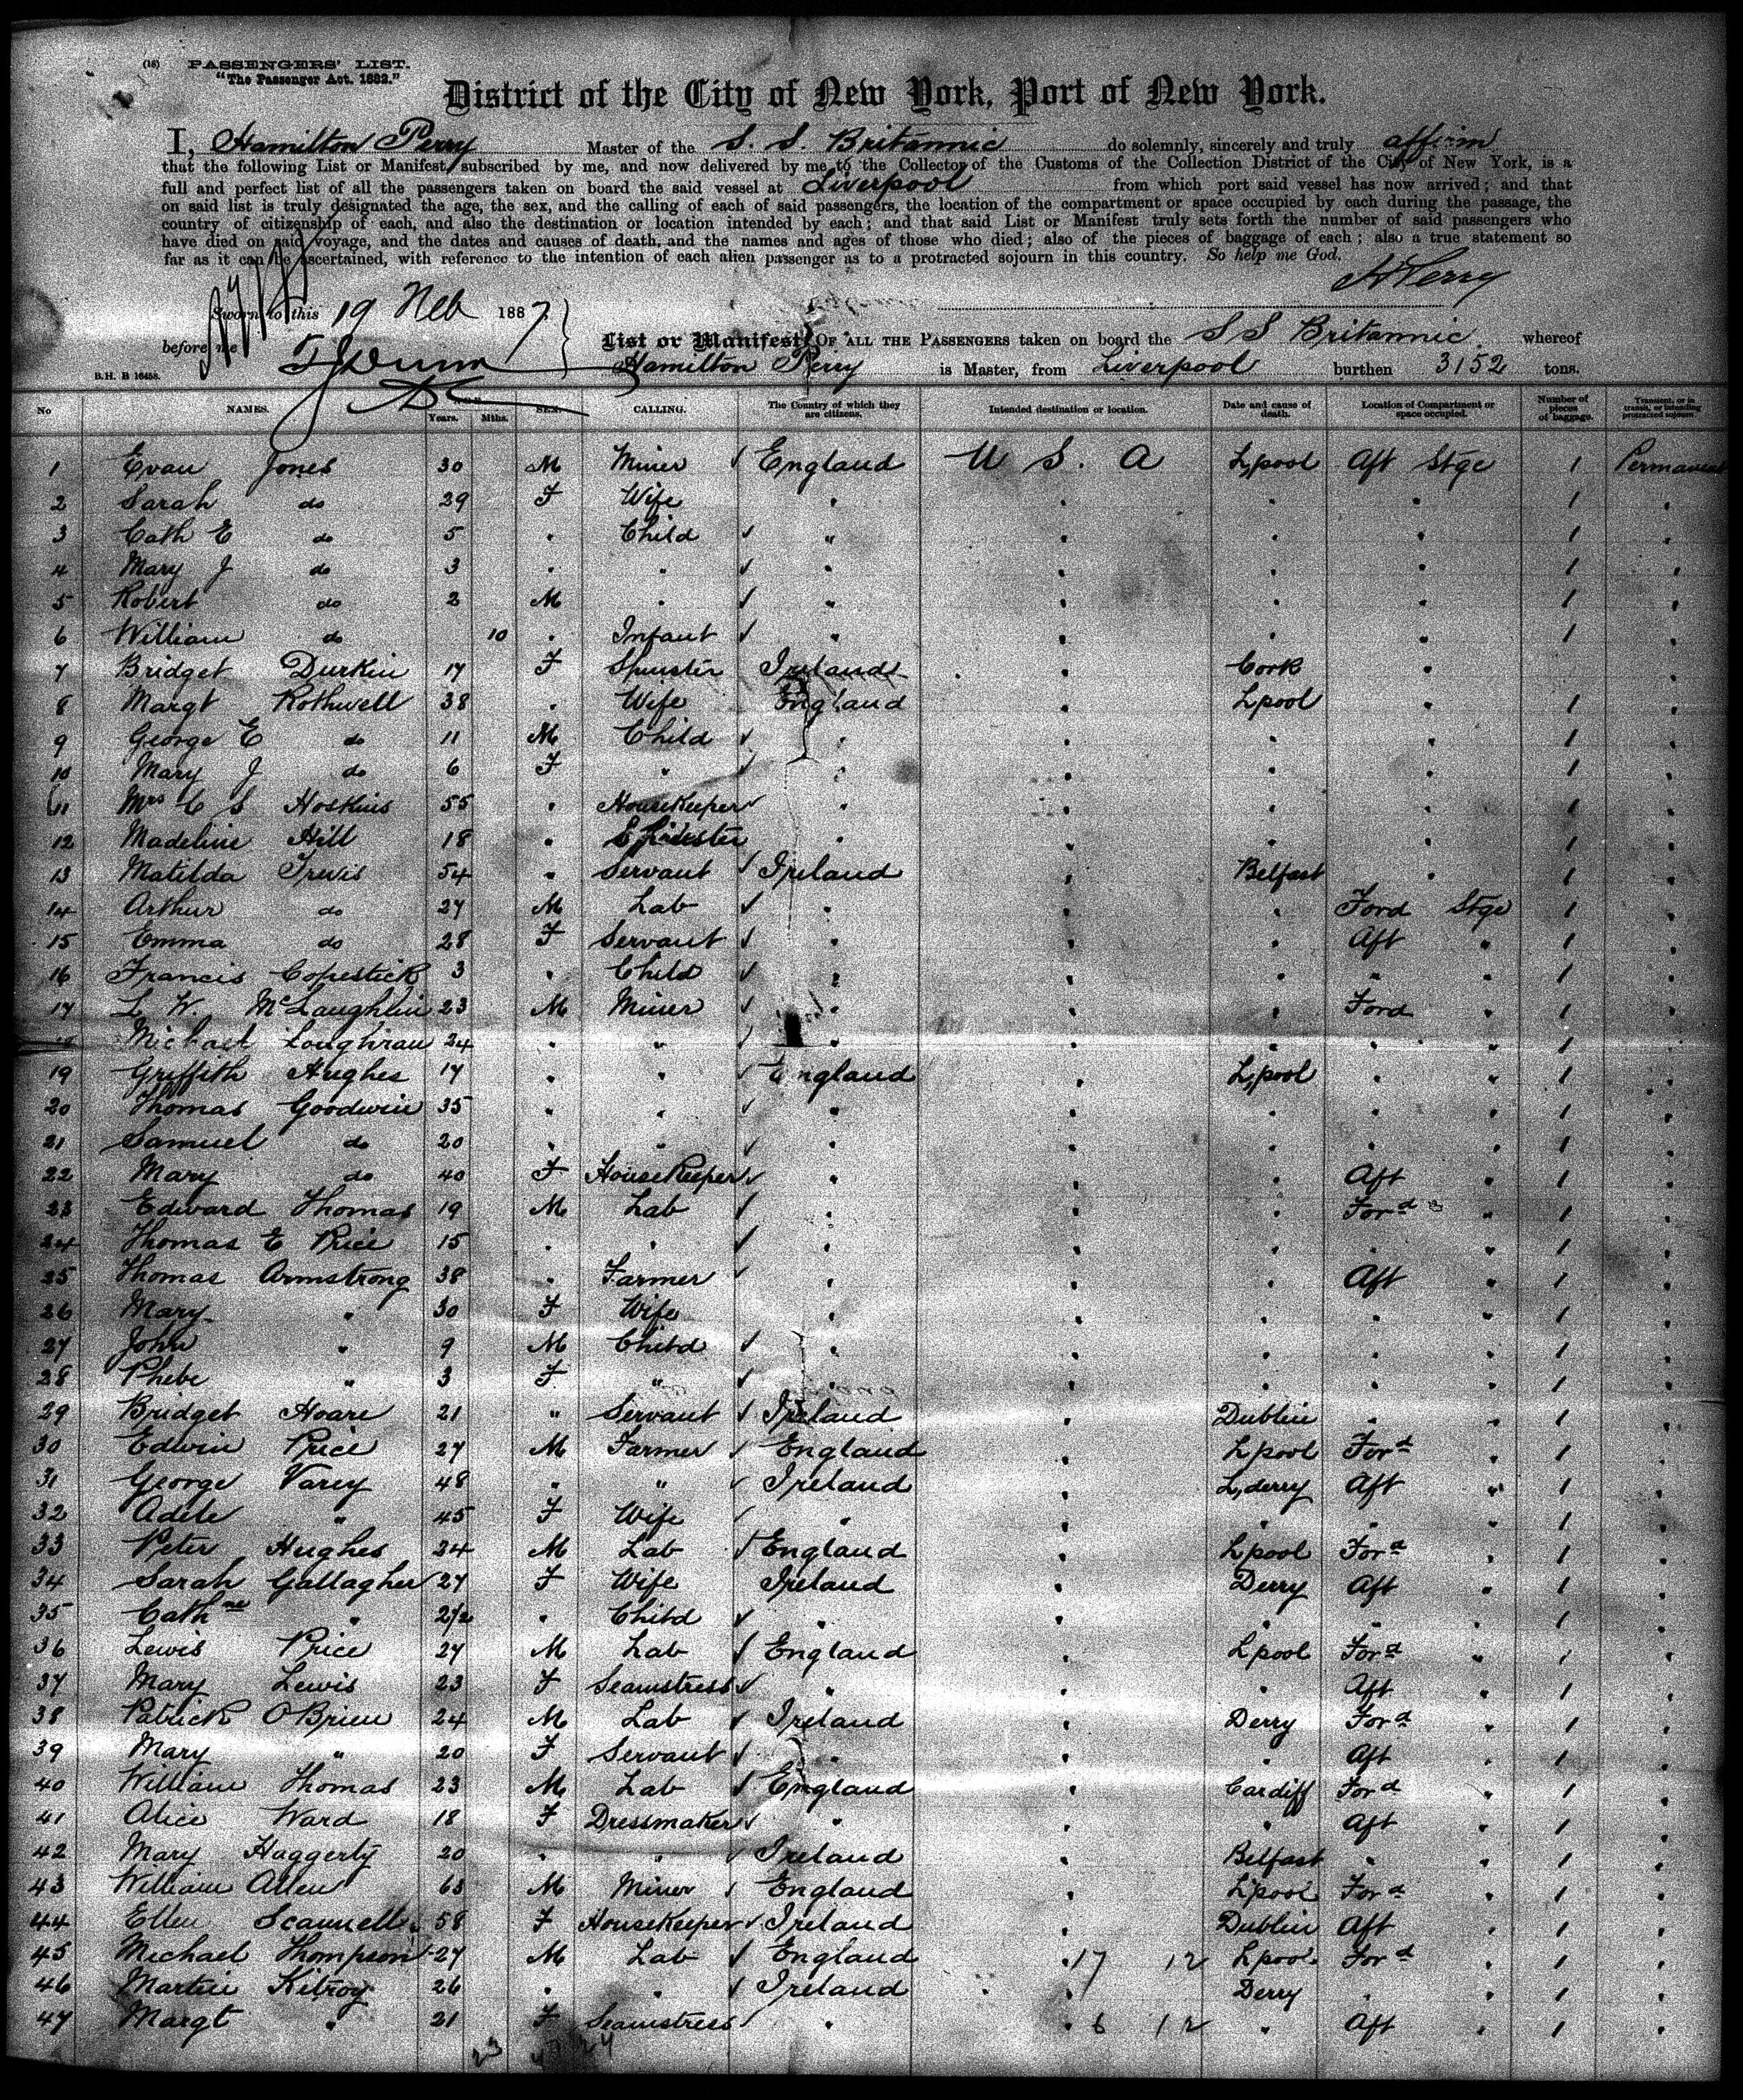 (18) PASSENGERS' LIST.
"The Passenger Act. 1882."
District of the City of New York, Port of New York.
I, Hamilton Perry Master of the S. S. Britannic do solemnly, sincerely and truly affirm
that the following List or Manifest, subscribed by me, and now delivered by me to the Collector of the Customs of the Collection District of the City of New York, is a
full and perfect list of all the passengers taken on board the said vessel at Liverpool from which port said vessel has now arrived; and that
on said list is truly designated the age, the sex, and the calling of each of said passengers, the location of the compartment or space occupied by each during the passage, the
country of citizenship of each, and also the destination or location intended by each; and that said List or Manifest truly sets forth the number of said passengers who
have died on said voyage, and the dates and causes of death, and the names and ages of those who died; also of the pieces of baggage of each; also a true statement so
far as it can be ascertained, with reference to the intention of each alien passenger as to a protracted sojourn in this country. So help me God.
HPerry
Sworn to this 19 Feb 1887
before me
List or Manifest OF ALL THE PASSENGERS taken on board the S S Britannic whereof
Hamilton Perry is Master, from Liverpool burthen 3152 tons.
B.H. B 16458.
No NAMES. AGE Years. Mths. SEX. CALLING. The Country of which they are citizens. Intended destination or location. Date and cause of death. Location of Compartment or space occupied. Number of pieces of baggage. Transient, or in transit, or intending protracted sojourn
1 Evan Jones 30 M Miner ✓ England U S. A Lpool Aft Stge 1 Permanent
2 Sarah do 29 F Wife " " " " 1 "
3 Cath E do 5 " Child ✓ " " " " 1 "
4 Mary J do 3 " " ✓ " " " " 1 "
5 Robert do 2 M " ✓ " " " " 1 "
6 William do 10 " Infant ✓ " " " " 1 "
7 Bridget Durkin 17 F Spinster Ireland " Cork " "
8 Margt Rothwell 38 " Wife England " Lpool " 1 "
9 George E do 11 M Child ✓ " " " " 1 "
10 Mary J do 6 F " ✓ " " " " 1 "
11 Mrs C S Hoskins 55 " Housekeeper ✓ " " " " 1 "
12 Madeline Hill 18 " " " " " 1 "
13 Matilda 54 " Servant ✓ Ireland " Belfast " 1 "
14 Arthur do 27 M Lab ✓ " " " Ford Stge 1 "
15 Emma do 28 F Servant ✓ " " " Aft " 1 "
16 Francis Copestick 3 " Child ✓ " " " " " 1 "
17 L W. McLaughlin 23 M Miner ✓ " " " Ford " 1 "
Michael Loughran 24 " " ✓ " " " " " 1 "
19 Griffith Hughes 17 " " ✓ England " Lpool " " 1 "
20 Thomas Goodwin 35 " " ✓ " " " " " 1 "
21 Samuel do 20 " " ✓ " " " " " 1 "
22 Mary do 40 F HouseKeeper ✓ " " " Aft " 1 "
23 Edward Thomas 19 M Lab ✓ " " " Ford " 1 "
24 Thomas E Price 15 " " ✓ " " " " " 1 "
25 Thomas Armstrong 38 " Farmer ✓ " " " Aft " 1 "
26 Mary " 30 F Wife " " " " " 1 "
27 John " 9 M Child ✓ " " " " " 1 "
28 Phebe " 3 F " ✓ " " " " " 1 "
29 Bridget Hoare 21 " Servant ✓ Ireland " Dublin " " 1 "
30 Edwin Price 27 M Farmer ✓ England " Lpool Ford " 1 "
31 George Varey 48 " " ✓ Ireland " L,derry Aft " 1 "
32 Adele " 45 F Wife ✓ " " " " " 1 "
33 Peter Hughes 24 M Lab ✓ England " Lpool Ford " 1 "
34 Sarah Gallagher 27 F Wife Ireland " Derry Aft " 1 "
35 Cathne " 2½ " Child ✓ " " " " " 1 "
36 Lewis Price 27 M Lab ✓ England " Lpool Ford " 1 "
37 Mary Lewis 23 F Seamstress ✓ " " " Aft " 1 "
38 Patrick OBrien 24 M Lab ✓ Ireland " Derry Ford " 1 "
39 Mary " 20 F Servant ✓ " " " Aft " 1 "
40 William Thomas 23 M Lab ✓ England " Cardiff Ford " 1 "
41 Alice Ward 18 F Dressmaker ✓ " " " Aft " 1 "
42 Mary Haggerty 20 " " ✓ Ireland " Belfast " " 1 "
43 William Allen 63 M Miner ✓ England " Lpool Ford " 1 "
44 Ellen Scannell 58 F HouseKeeper ✓ Ireland " Dublin Aft " 1 "
45 Michael Thompson 27 M Lab ✓ England " 17 12 Lpool Ford " 1 "
46 Martin Kilroy 26 " " ✓ Ireland " Derry " " 1 "
47 Margt " 21 F Seamstress ✓ " " 6 12 " Aft " 1 "
23 47 24